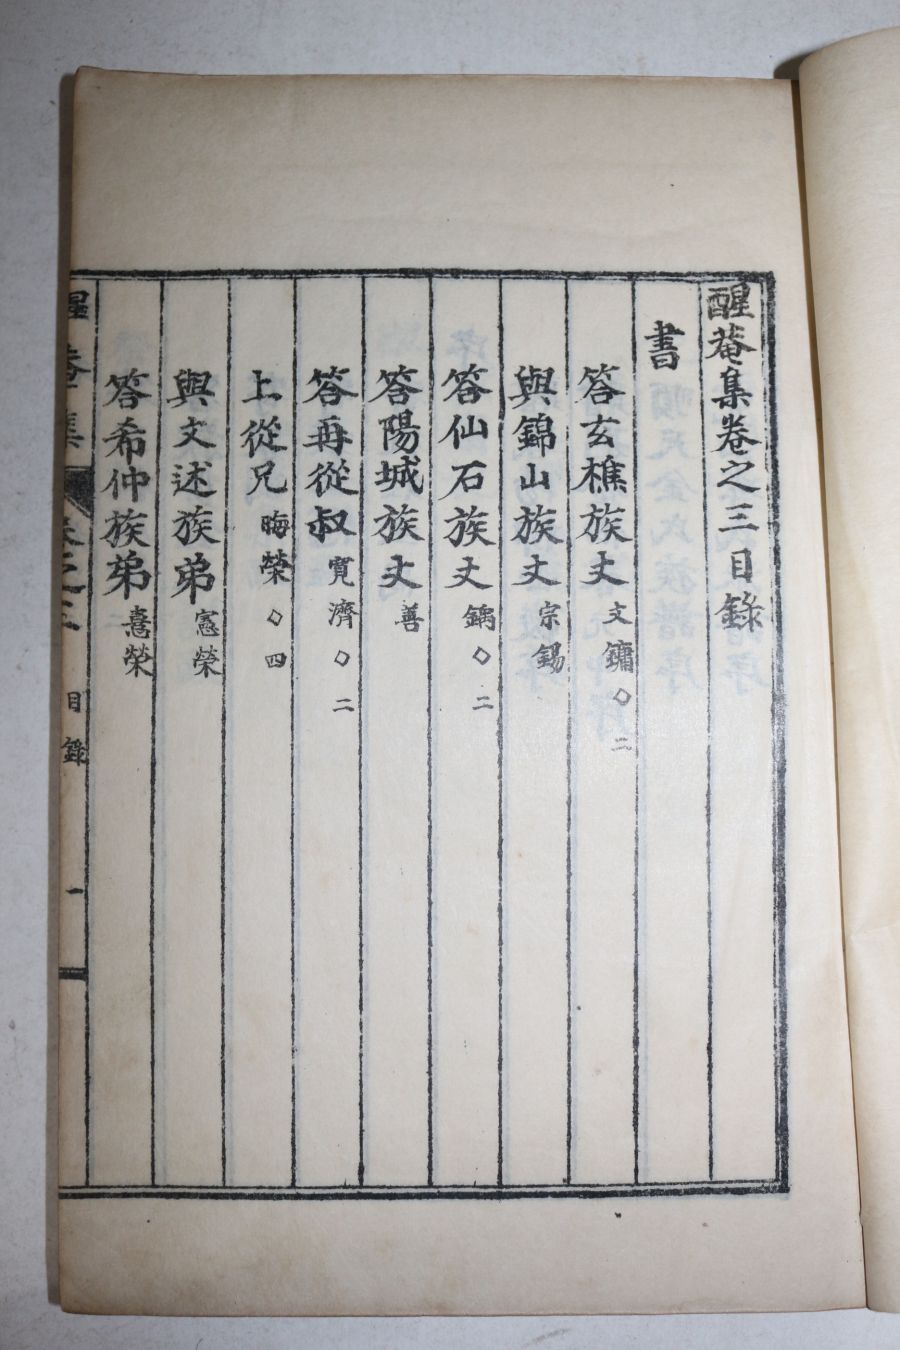 醒菴集卷之三目錄
書
答玄樵族丈 文鏞◇二
與錦山族丈 宗錫
答仙石族丈 鎬◇二
答陽城族丈 善
答再從叔 寬濟◇二
上從兄 晦榮◇四
與文述族弟 憲榮
答希仲族弟 憙榮
醒菴集 卷之三 目錄 一